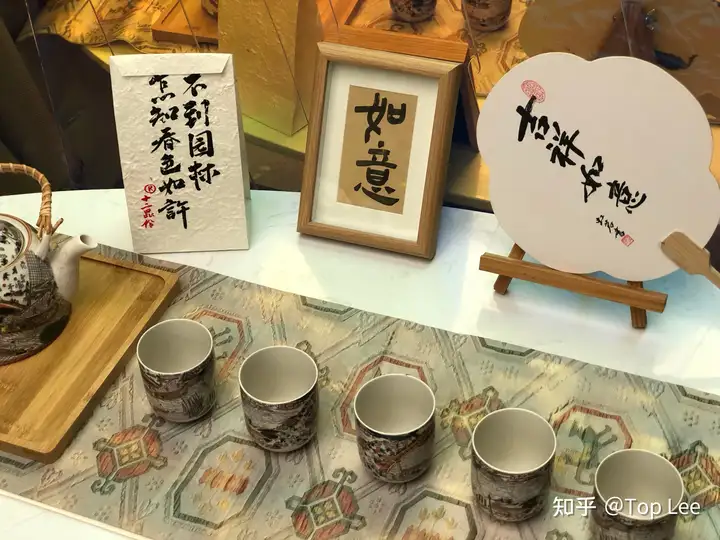 不到园林
怎知春色如許
如意
吉祥如意
知乎 @Top Lee